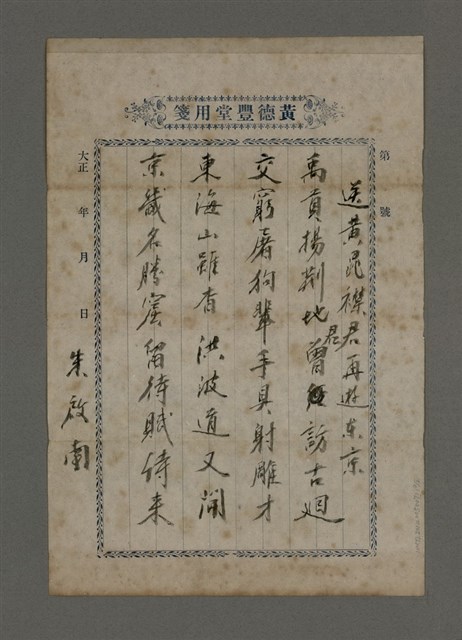 黃德豐堂用箋
第 號
送黃昆禊君再遊东京
禹貢揚荊地君曾訪古廻
交窮屠狗輩手具射雕才
東海山雖杳洪波道又開
京畿名勝窟留待賦詩来
朱啟南
大正 年 月 日